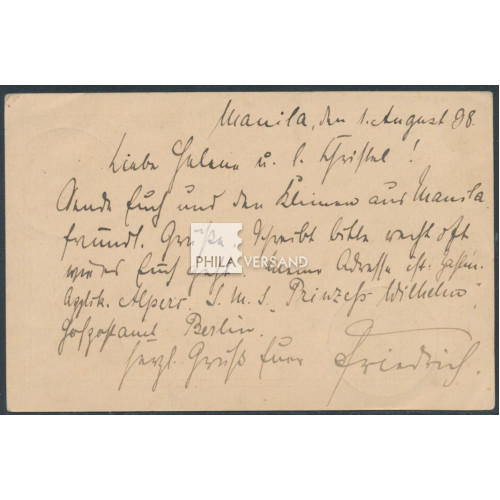 Manila, den 1. August 98.
Liebe Helene u. l. Christel!
Sende Euch und den Kleinen aus Manila
freundl. Grüße. Schreibt bitte recht oft
wie es Euch geht. Meine Adresse ist.
Applik. Alpers. S.M.S. "Prinzeß Wilhelm".
Hofpostamt Berlin.
Herzl. Gruß Euer Friedrich.
PHILA VERSAND